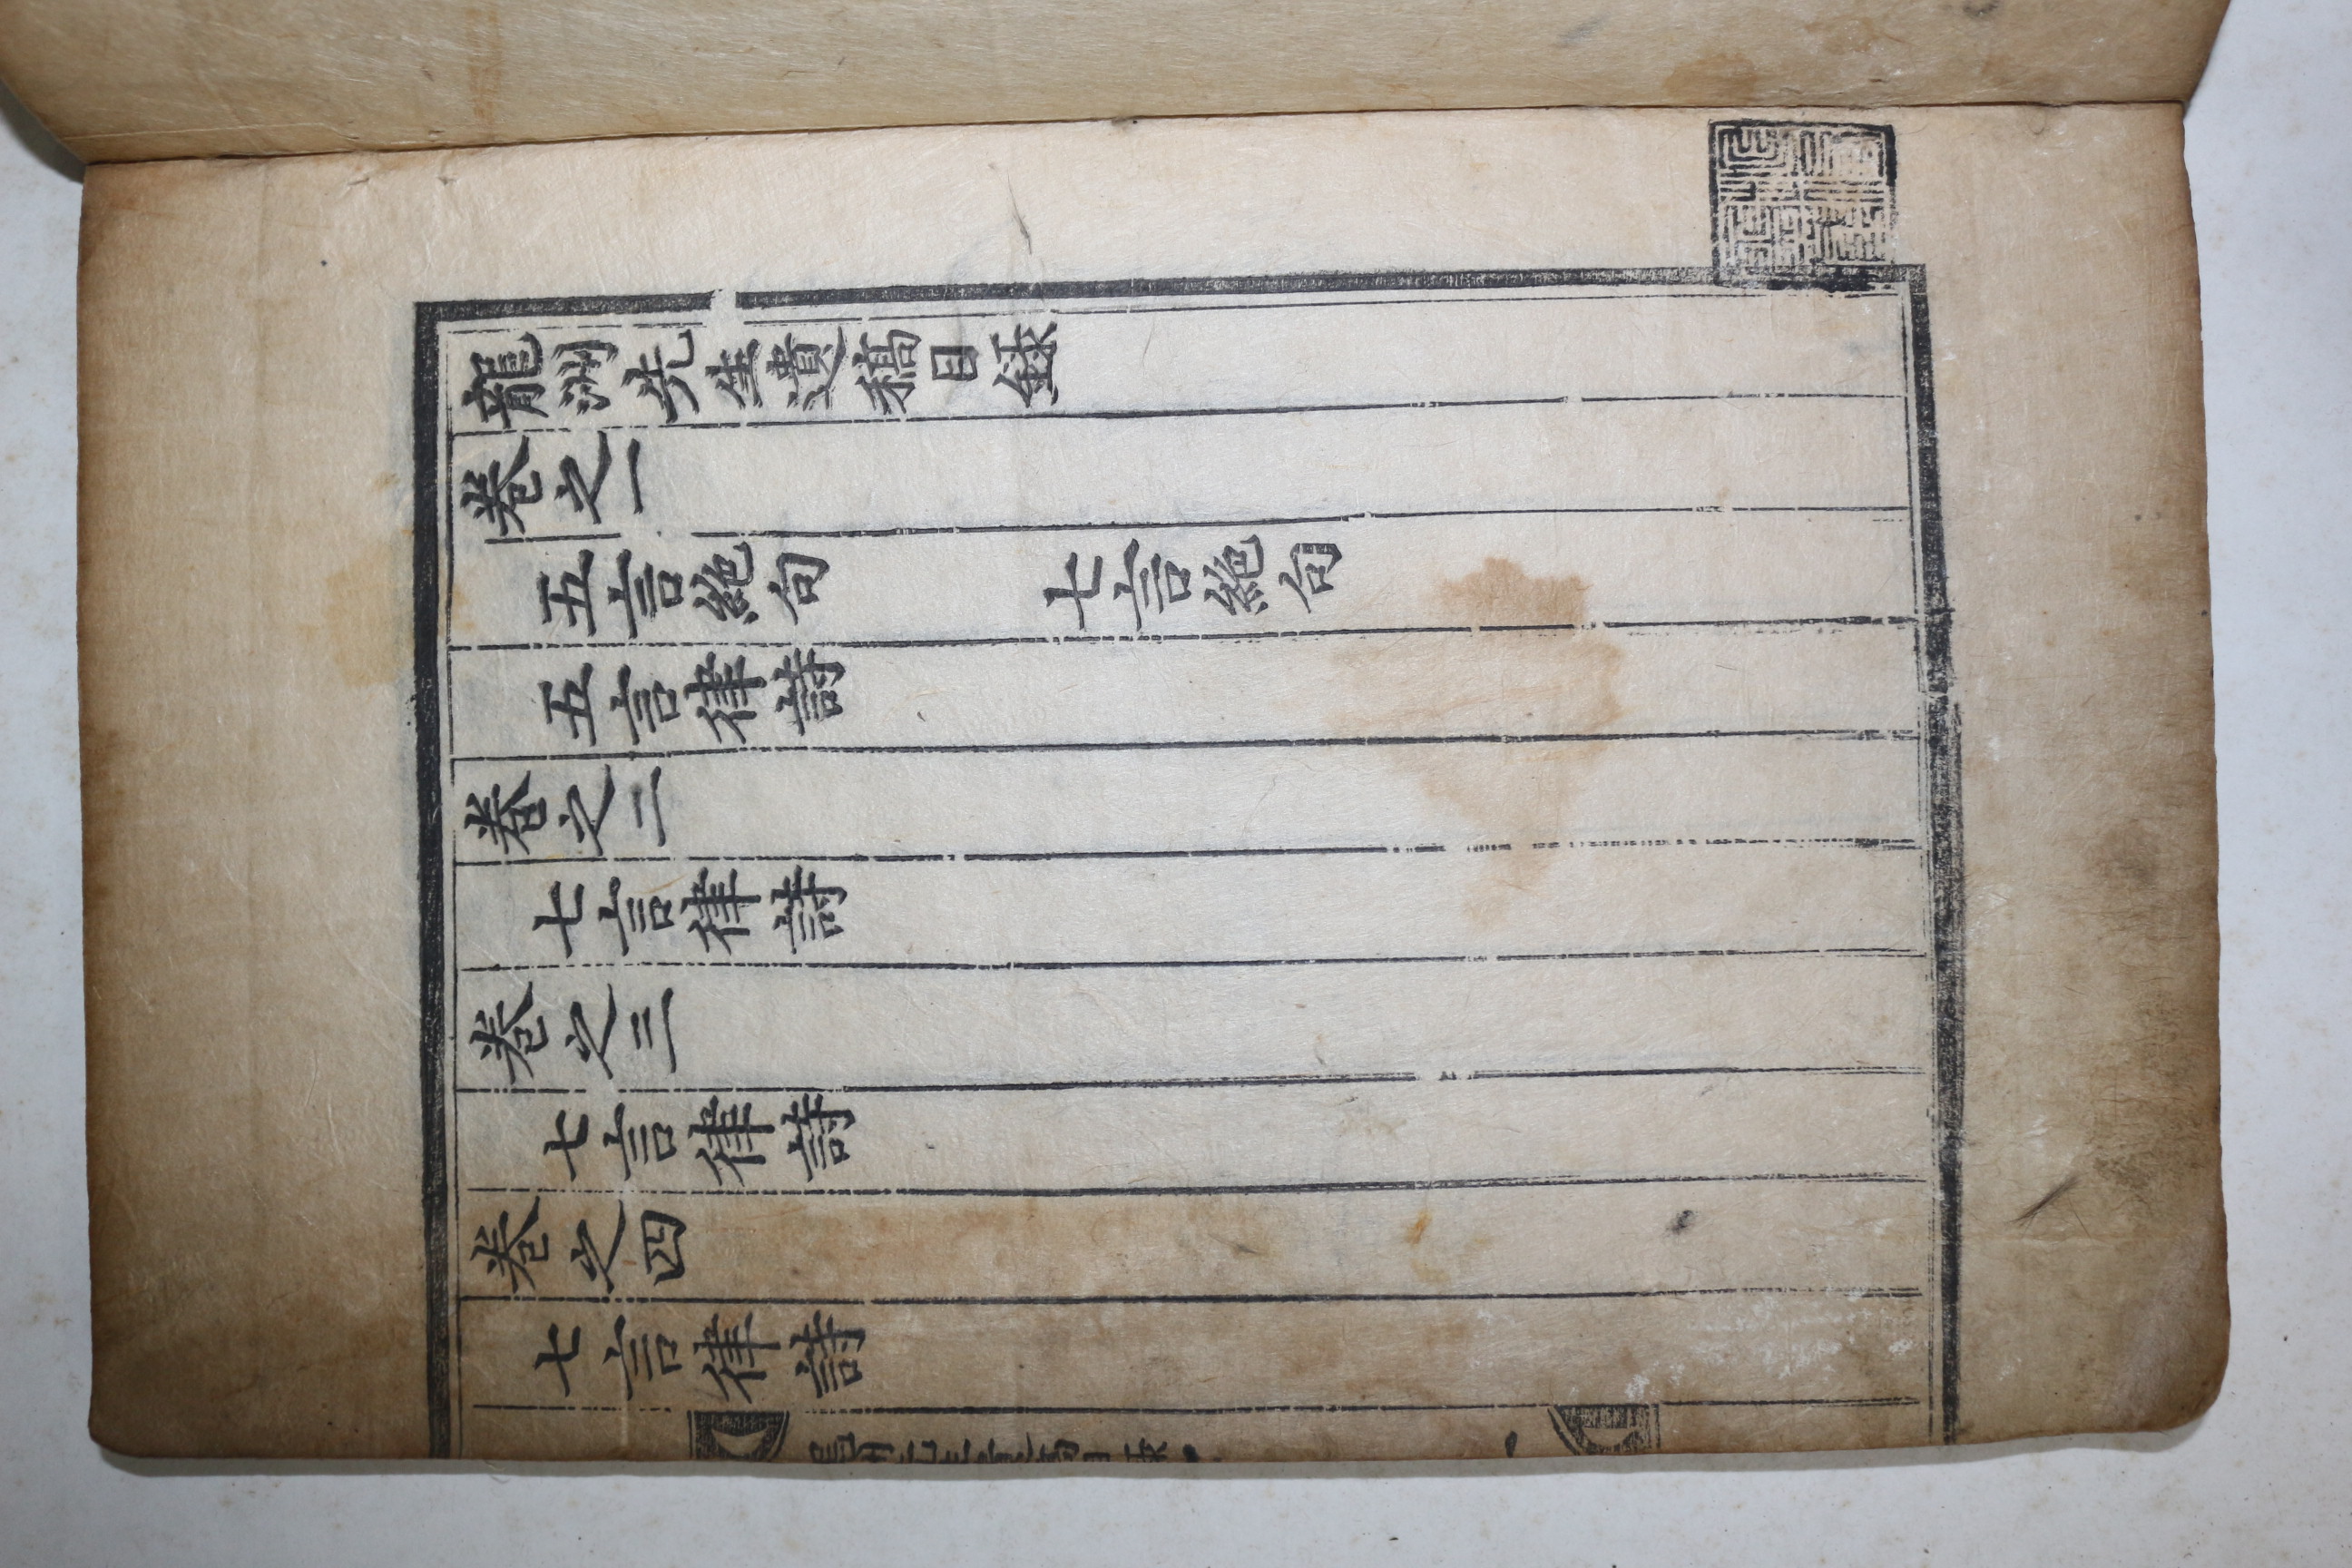 龍洲先生遺稿目錄
卷之一
五言絶句 七言絶句
五言律詩
卷之二
七言律詩
卷之三
七言律詩
卷之四
七言律詩